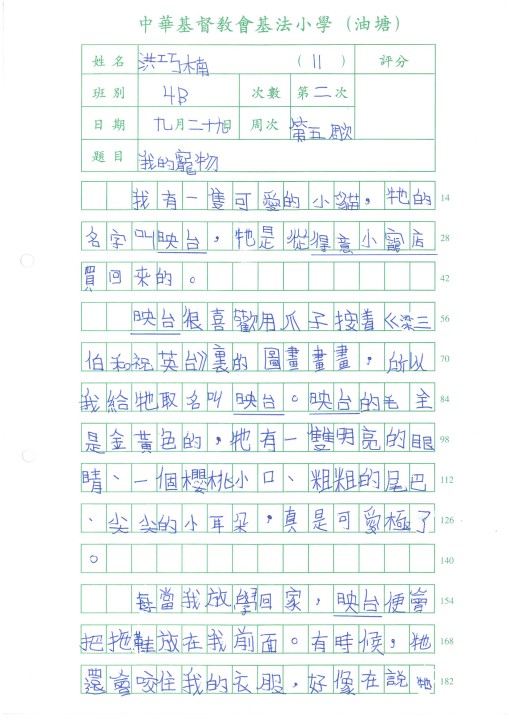 中華基督教會基法小學（油塘）
姓名 洪巧楠 （11） 評分
班別 4B 次數 第二次
日期 九月二十九日 周次 第五周
題目 我的寵物
我有一隻可愛的小貓，牠的 14
名字叫映台，牠是從得意小寵店 28
買回來的。 42
映台很喜歡用爪子按着《梁三 56
伯和祝英台》裏的圖畫畫畫，所以 70
我給牠取名叫映台。映台的毛全 84
是金黃色的，牠有一雙明亮的眼 98
睛、一個櫻桃小口、粗粗的尾巴 112
、尖尖的小耳朵，真是可愛極了 126
。 140
每當我放學回家，映台便會 154
把拖鞋放在我前面。有時候，牠 168
還會咬住我的衣服，好像在說牠 182